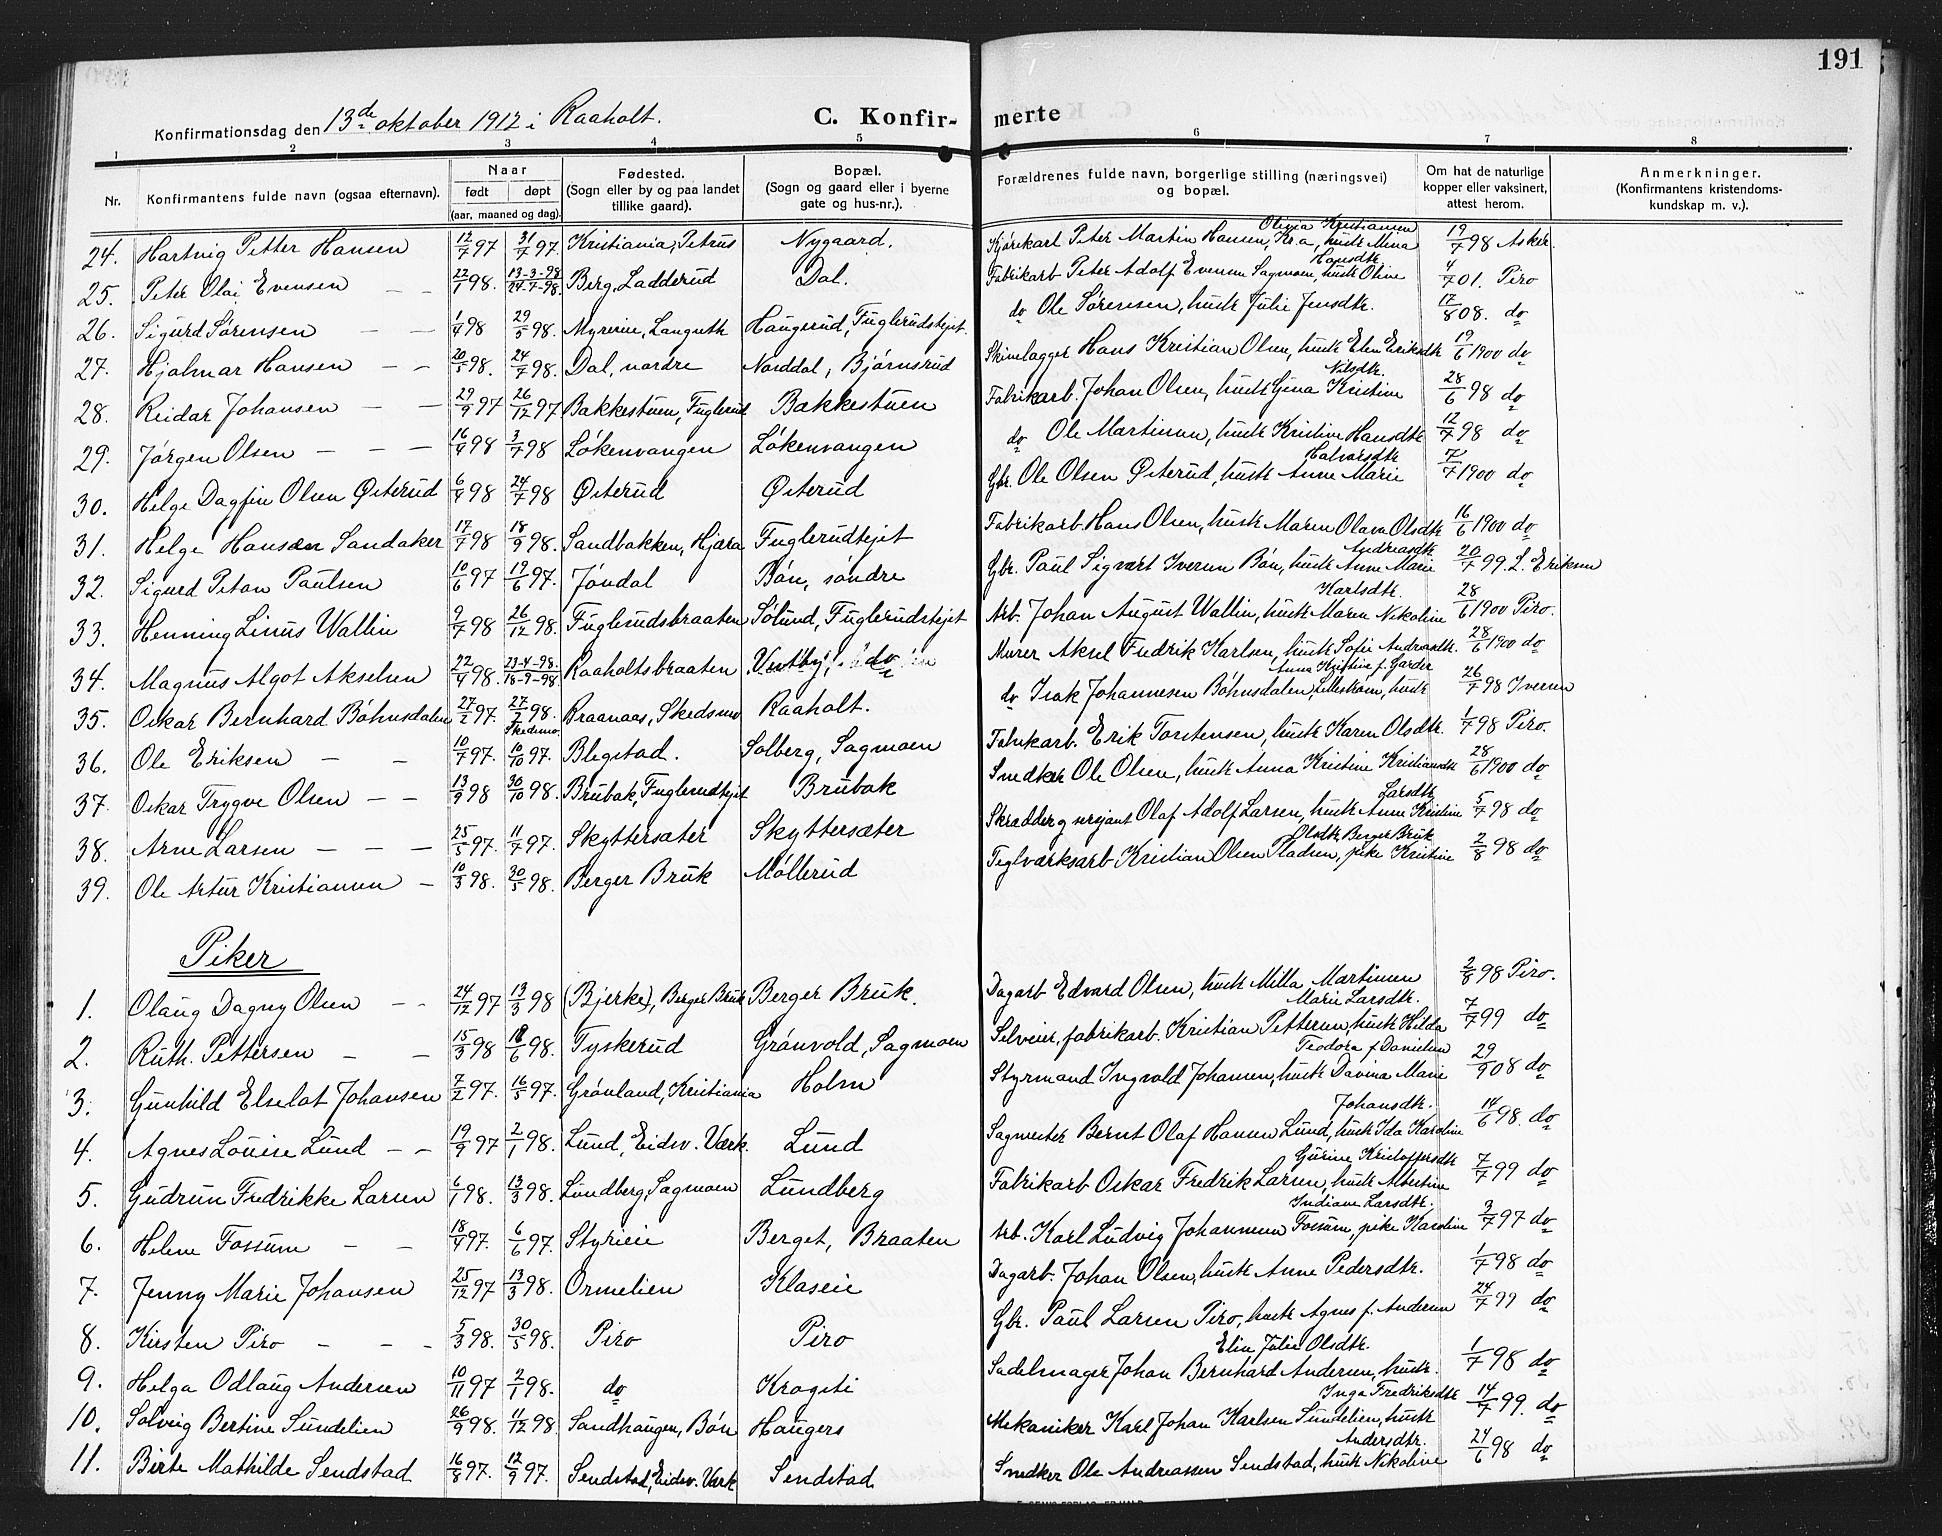 191
Konfirmationsdag den 13de oktober 1912 i Raaholt. C. Konfirmerte
1 2 3 4 5 6 7 8
Nr. Konfirmantens fulde navn (ogsaa efternavn). Naar født døpt (aar, maaned og dag). Fødested. (Sogn eller by og paa landet tillike gaard). Bopæl. (Sogn og gaard eller i byerne gate og hus-nr.). Forældrenes fulde navn, borgerlige stilling (næringsvei) og bopæl. Om hat de naturlige kopper eller vaksinert, attest herom. Anmerkninger. (Konfirmantens kristendomskundskap m. v.).
24. Hartvig Petter Hansen 12/7 97 31/7 97 Kristiania, Petrus Nygaard. Kjørekarl Peter Martin Hansen, Kr.a, hustr Mina Olivia Kristiansen 19/7 98 Asker.
25. Peter Olai Evensen — — 22/1 98. 13-3-98 24-7-98. Berg, Ladderud Dal. Fabrikarb Peter Adolf Evensen Sagmoen, hustr Oline Hansdtr. 4/7 01. Piro
26. Sigurd Sørensen — — 1/4 98 29/5 98. Myrerie, Languth Haugerud, Fuglerudstejet. do Ole Sørensen, hustr Julie Jensdtr. 17/8 08. do
27. Hjalmar Hansen — — 20/5 98. 24/7 98. Dal, nordre Norddal, Bjørnsrud Skinnlagger Hans Kristian Olsen, hustr Elen Eriksdtr 19/6 1900 do
28. Reidar Johansen — — 29/9 97 26/12 97 Bakkestuen, Fuglerud Bakkestuen Fabrikarb. Johan Olsen, hustr Gina Kristine Nilsdtr. 28/6 98 do
29. Jørgen Olsen — — — 16/4 98 3/7 98 Løkenvangen Løkenvangen do Ole Martinsen, hustr Kristine Hansdtr 12/7 98 do
30. Helge Dagfin Olsen Østerud 6/4 98 24/7 98 Østerud Østerud Gbr. Ole Olsen Østerud, hustr Anne Marie Halvorsdtr 7/7 1900 do
31. Helge Hansen Sandaker 17/7 98 18/9 98. Sandbakken, Hjæra Fuglerudtejet Fabrikarb. Hans Olsen, hustr Maren Olava Olsdtr 16/6 1900 do
32. Sigurd Peton Paulsen 10/6 97 19/6 97. Jøndal Bøn, søndre Gbr. Paul Sigvart Iversen Bøn, hustr Anne Marie Andreasdtr. 20/7 99. L. Eriksen
33. Henning Linus Wallin 9/7 98 26/12 98. Fuglerudsbraaten Sølund, Fuglerudstejet Arb. Johan August Wallin, hustr Maren Nikoline Karlsdtr. 28/6 1900 Piro.
34. Magnus Algot Akselsen 22/4 98. 23-4-98. 18-9-98. Raaholtsbraaten Vestby, do Murer Aksel Fredrik Karlsen, hustr Sofie Andreasdtr. 28/6 1900 do
35. Oskar Bernhard Bøhnsdalen 27/2 97. 27/2 98. Skedsmo. Braanaas, Skedsmo Raaholt. do Isak Johannesen Bøhnsdalen, Lillestrøm, hustr Anna Kristine f. Garder 26/7 98 Iversen
36. Ole Eriksen — — 10/7 97. 10/10 97. Blegstad. Solberg, Sagmoen Fabrikarb. Erik Torstensen, hustr Karen Olsdtr. 1/7 98 Piro.
37. Oskar Trygve Olsen — — 13/9 98 30/10 98. Brubak, Fuglerudtejet Brubak Snedker Ole Olsen, hustr Anna Kristine Kristiansdtr 28/6 1900 do
38. Arne Larsen — — — 25/5 97. 11/7 97. Skyttersæter Skyttersæter Skrædder og sersjant Olaf Adolf Larsen, hustr Anne Kristine Larsdtr 5/7 98 do
39. Ole Artur Kristiansen — 10/3 98. 30/5 98. Berger Bruk Møllerud Teglværksarb Kristian Olsen Pladsen, pike Kristine Olsdtr. Berger Bruk 2/8 98 do
Piker
1. Olaug Dagny Olsen — — 24/12 97 13/3 98 (Bjerke), Berger Bruk Berger Bruk. Dagarb Edvard Olsen, hustr Milla Martinsen 2/8 98 Piro.
2. Ruth Pettersen — — 15/3 98 18/6 98. Tyskerud Grønvold, Sagmoen Selveier, fabrikarb. Kristian Pettersen, hustr Hilda Marie Larsdtr. 7/7 99 do
3. Gunhild Elselat Johansen 7/2 97. 16/5 97. Grønland, Kristiania Holm Styrmand Ingvald Johansen, hustr Davina Marie Teodora f. Danielsen 29/9 08 do
4. Agnes Louise Lund — — 19/9 97 2/1 98. Lund, Eidsv. Værk. Lund Sagmester Bernt Olaf Hansen Lund, hustr Ida Karoline Johansdtr. 14/6 98. do
5. Gudrun Fredrikke Larsen 6/1 98. 13/3 98. Lundberg, Sagmoen Lundberg Fabrikarb Oskar Fredrik Larsen, hustr Albertine Gurine Kristoffersdtr 7/7 99 do
6. Helene Fossum — — 18/4 97. 6/6 97. Styrieie Berget, Braaten Arb. Karl Ludvig Johannesen Fossum, pike Karoline Indiane Larsdtr. 3/7 97 do
7. Jenny Marie Johansen 25/12 97 13/3 98. Ormelien Klaseie Dagarb. Johan Olsen, hustr Anne Pedersdtr. 1/7 98 do
8. Kirsten Piro — — — 5/3 98. 30/5 98. Piro Piro Gbr. Paul Larsen Piro, hustr Agnes f. Andersen 24/7 99 do
9. Helga Odlaug Andersen 10/11 97 2/1 98. do Krogsti Sadelmager Johan Bernhard Andersen, hustr. Elin Julie Olsdtr. 1/7 98 do
10. Solveig Bertine Sundelien 26/9 98. 11/12 98 Sandhaugen, Bøn Haugers Mekaniker Karl Johan Karlsen Sundelien, hustr Inga Fredriksdtr 14/7 99. do
11. Birte Mathilde Sendstad 16/8 97. 12/9 97. Sendstad, Eidsv. Værk Sendstad Snedker Ole Andreassen Sendstad, hustr Nikoline Andersdtr. 24/6 98 do